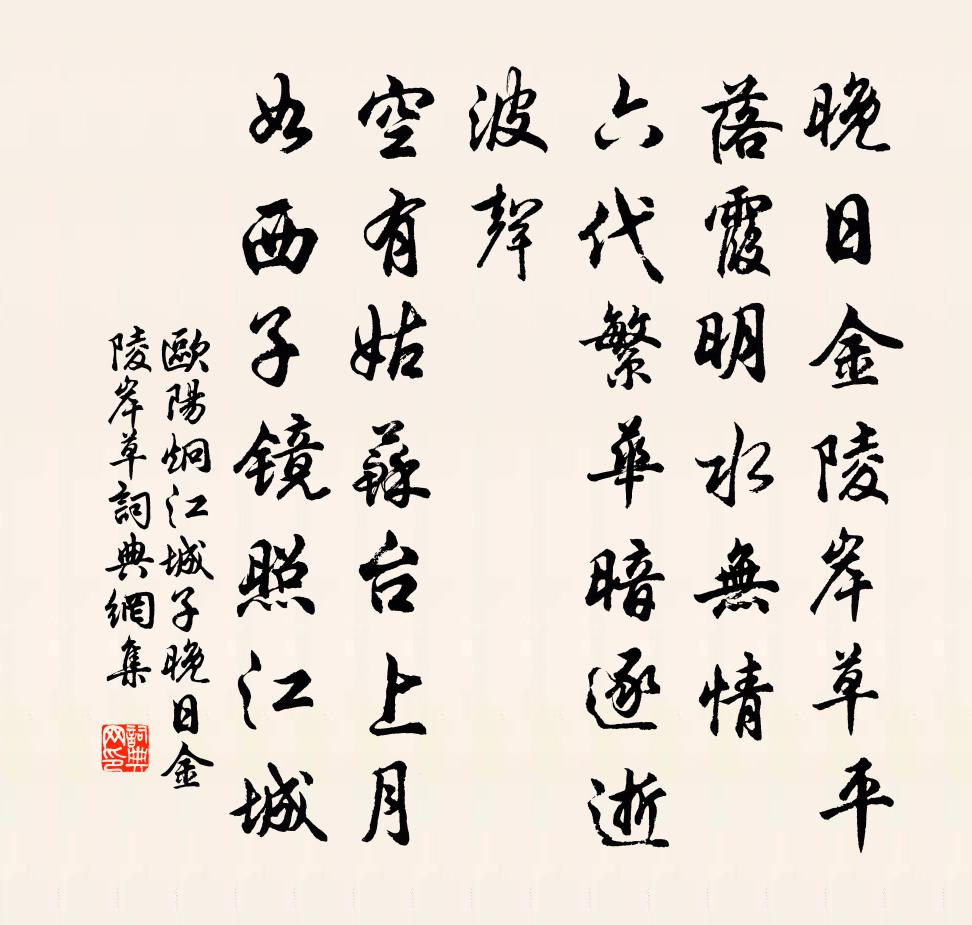 晚日金陵岸草平
落霞明水無情
六代繁華暗逐逝
波聲
空有姑蘇台上月
如西子镜照江城
歐陽炯江城子晚日金
陵岸草詞典網集
詞典网印